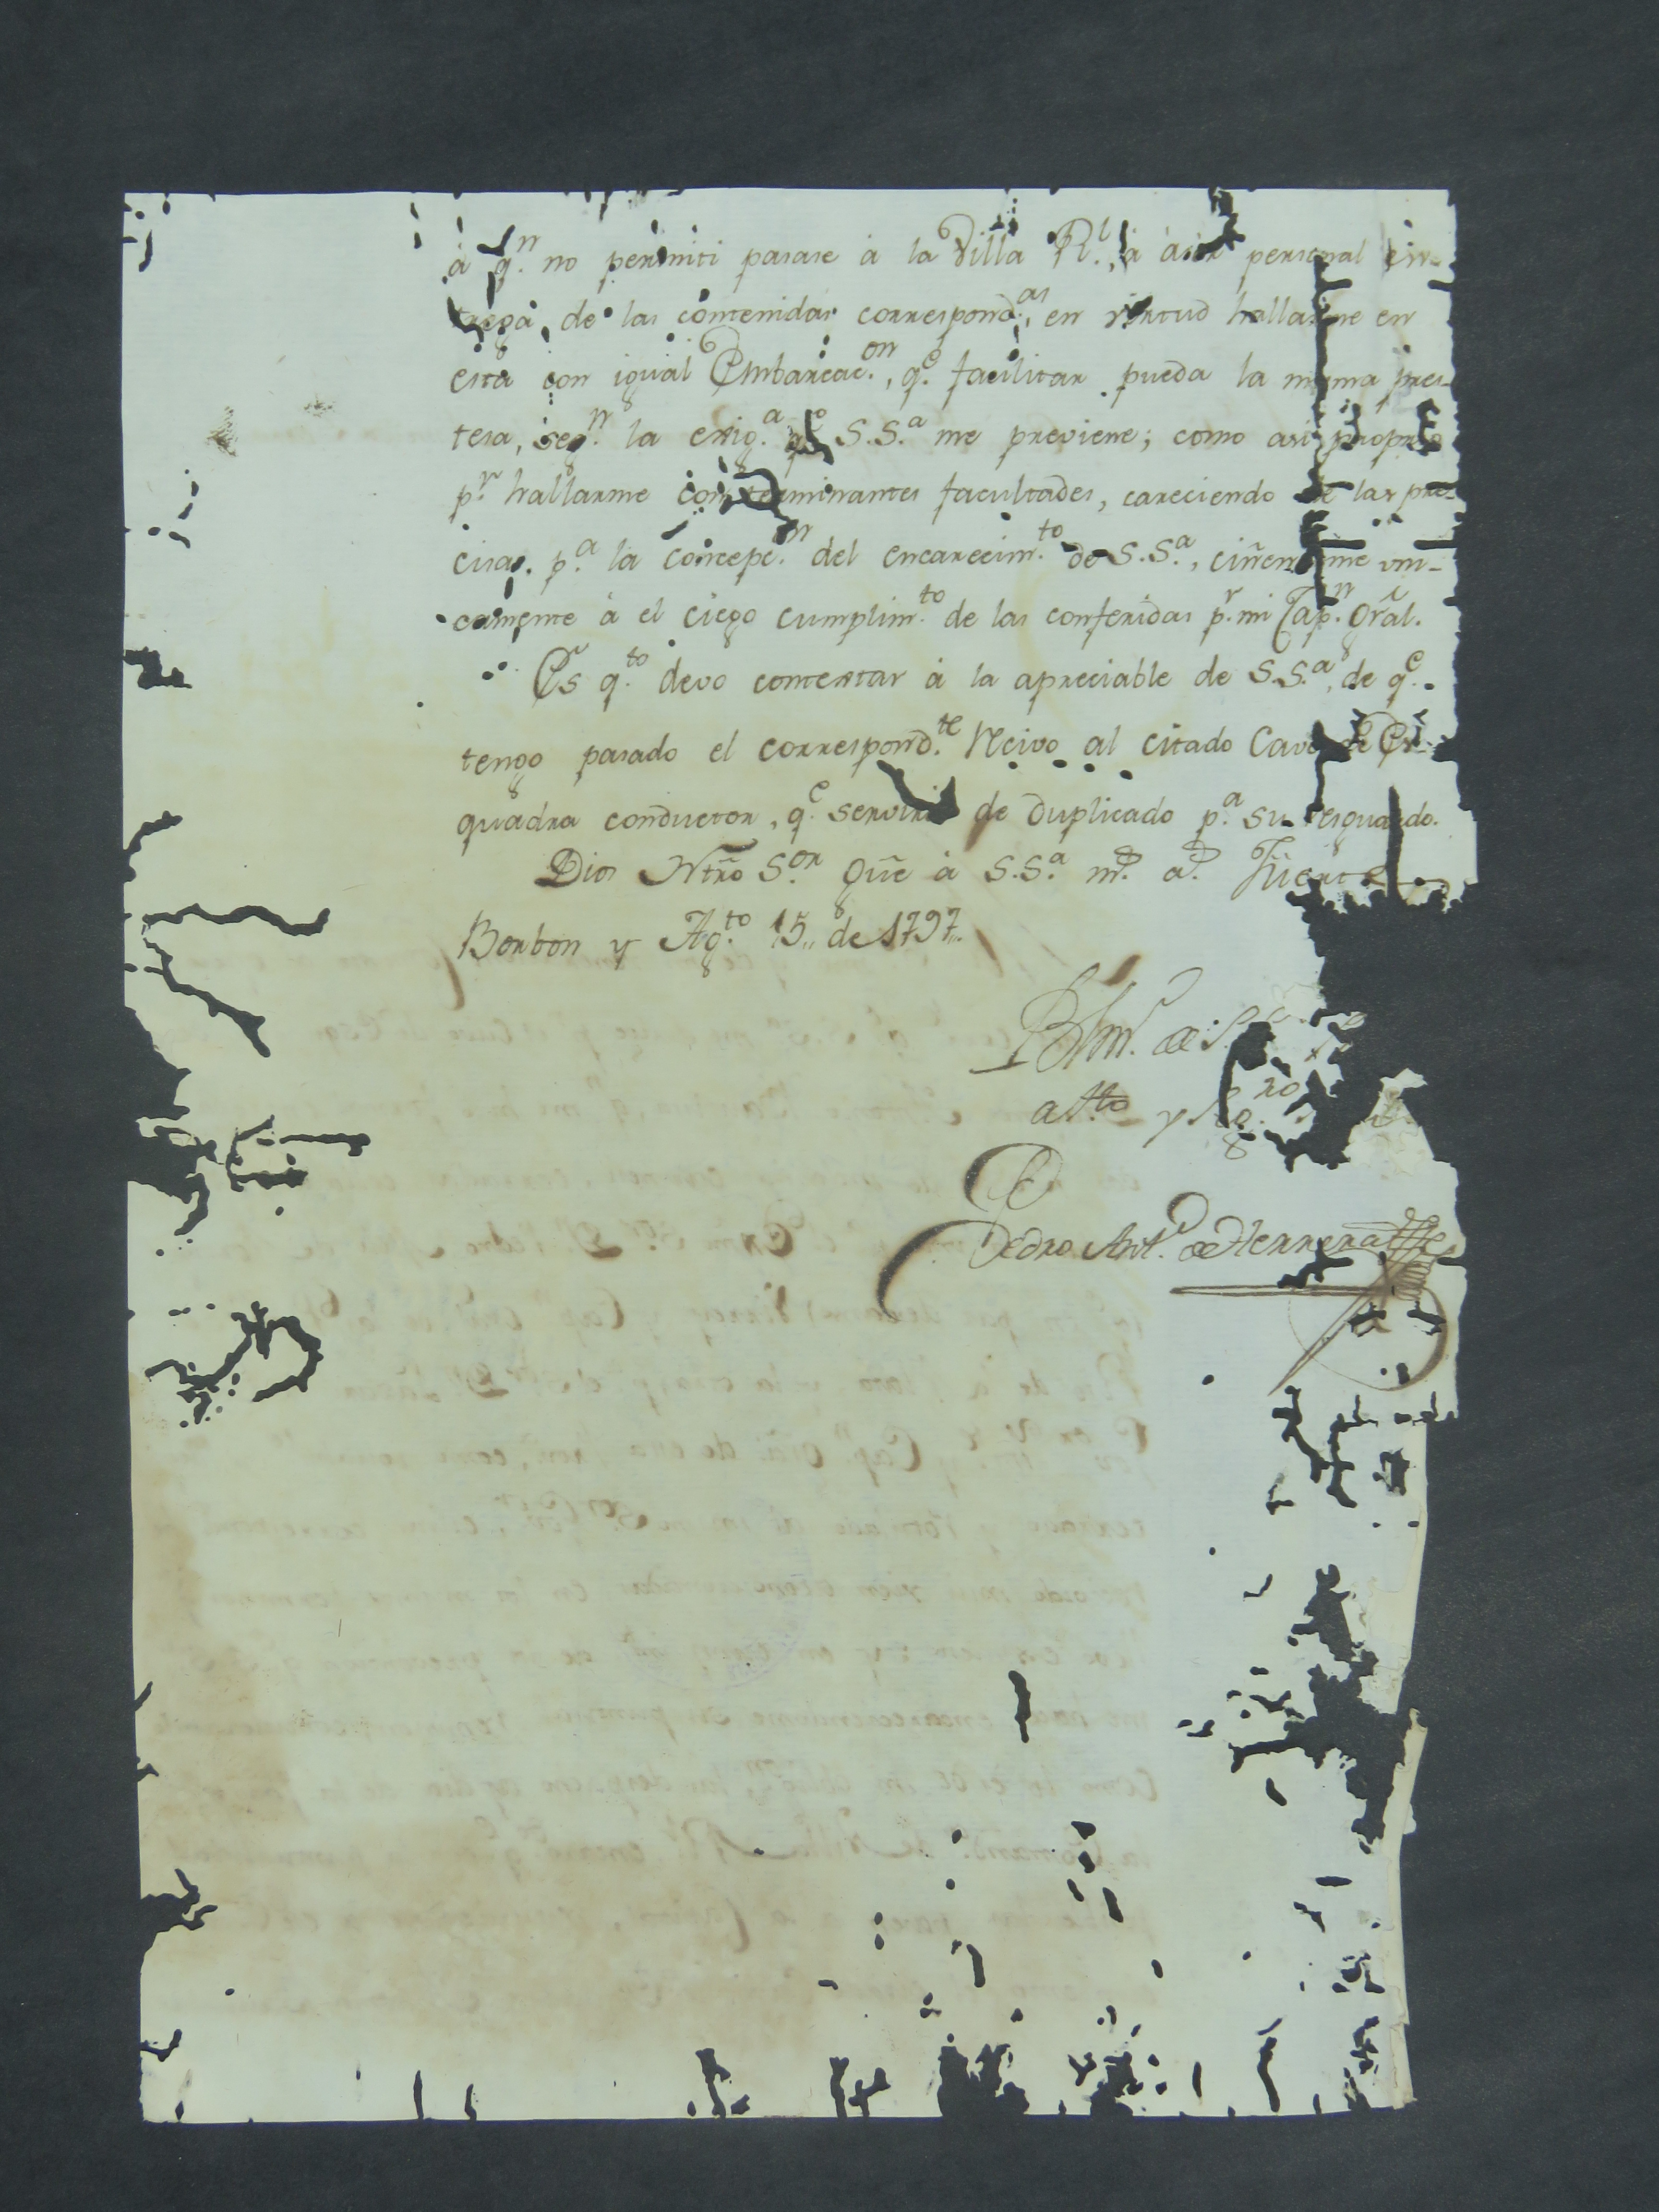 á q.n no permiti pasase á la Villa Rl., á áser personal en-
trega, de las contenidas correspond.as, en virtud hallarme en
esta con igual Embarcac.on, q.e facilitar pueda la misma pres-
tesa, seg.n la exig.a q.e S.S.a me previene; como asi proprio
p.r hallarme con terminantes facultades, careciendo de las pre-
cisas p.a la concepc.n del encarecim.to de S.S.a, ciñendome uni-
camente á el ciego cumplim.to de las conferidas p.r mi Cap.n Gral.
Es q.to devo contextar á la apreciable de S.S.a, de q.e
tengo pasado el correspond.te Recivo al citado Cavo de Es-
quadra conductor, q.e servirá de duplicado p.a su resguardo.
Dios Ntro S.or gue á S.S.a m.s a.s Fuerte
Borbon y Ag.to 15,, de 1797,,
Blm. de S.
atto y Seg.ro
Pedro Ant.o de Herrera